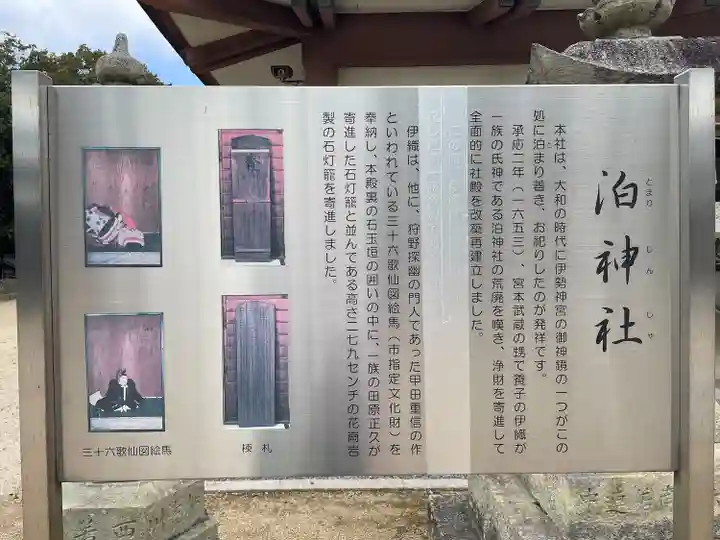 泊神社
とまり じん じゃ
本社は、大和の時代に伊勢神宮の御神鏡の一つがこの
処に泊まり着き、お祀りしたのが発祥です。
承応二年(一六五三)、宮本武蔵の甥で養子の伊織が
一族の氏神である泊神社の荒廃を嘆き、浄財を寄進して
全面的に社殿を改築再建立しました。
伊織は、他に、狩野探幽の門人であった甲田重信の作
といわれている三十六歌仙図絵馬(市指定文化財)を
奉納し、本殿裏の石玉垣の囲いの中に、一族の田原正久が
寄進した石灯籠と並んである高さ二七九センチの花崗岩
製の石灯籠を寄進しました。
棟札
三十六歌仙図絵馬